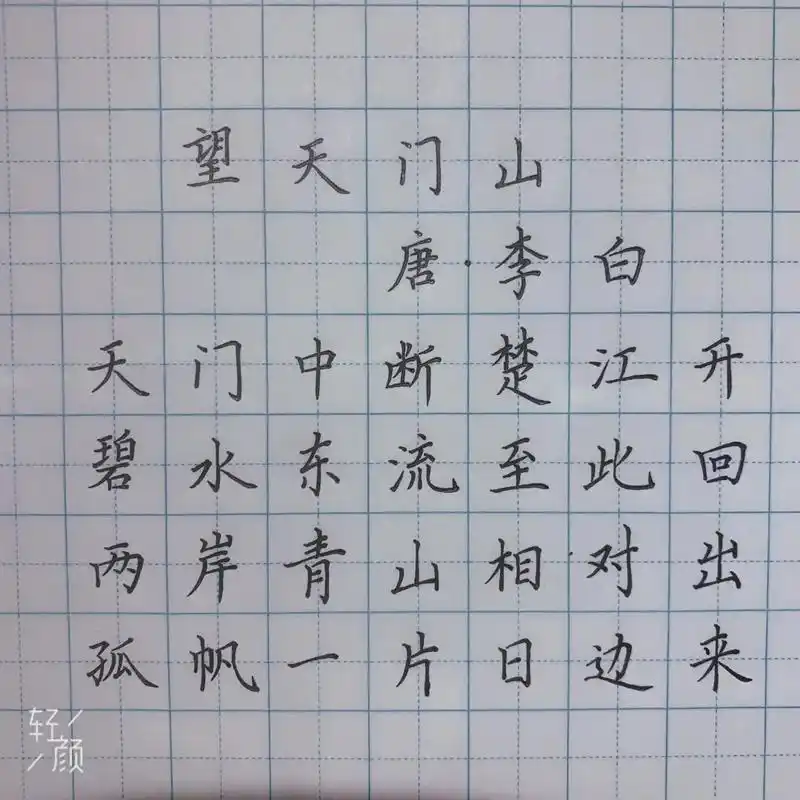 望天门山
唐·李白
天门中断楚江开
碧水东流至此回
两岸青山相对出
孤帆一片日边来
轻颜